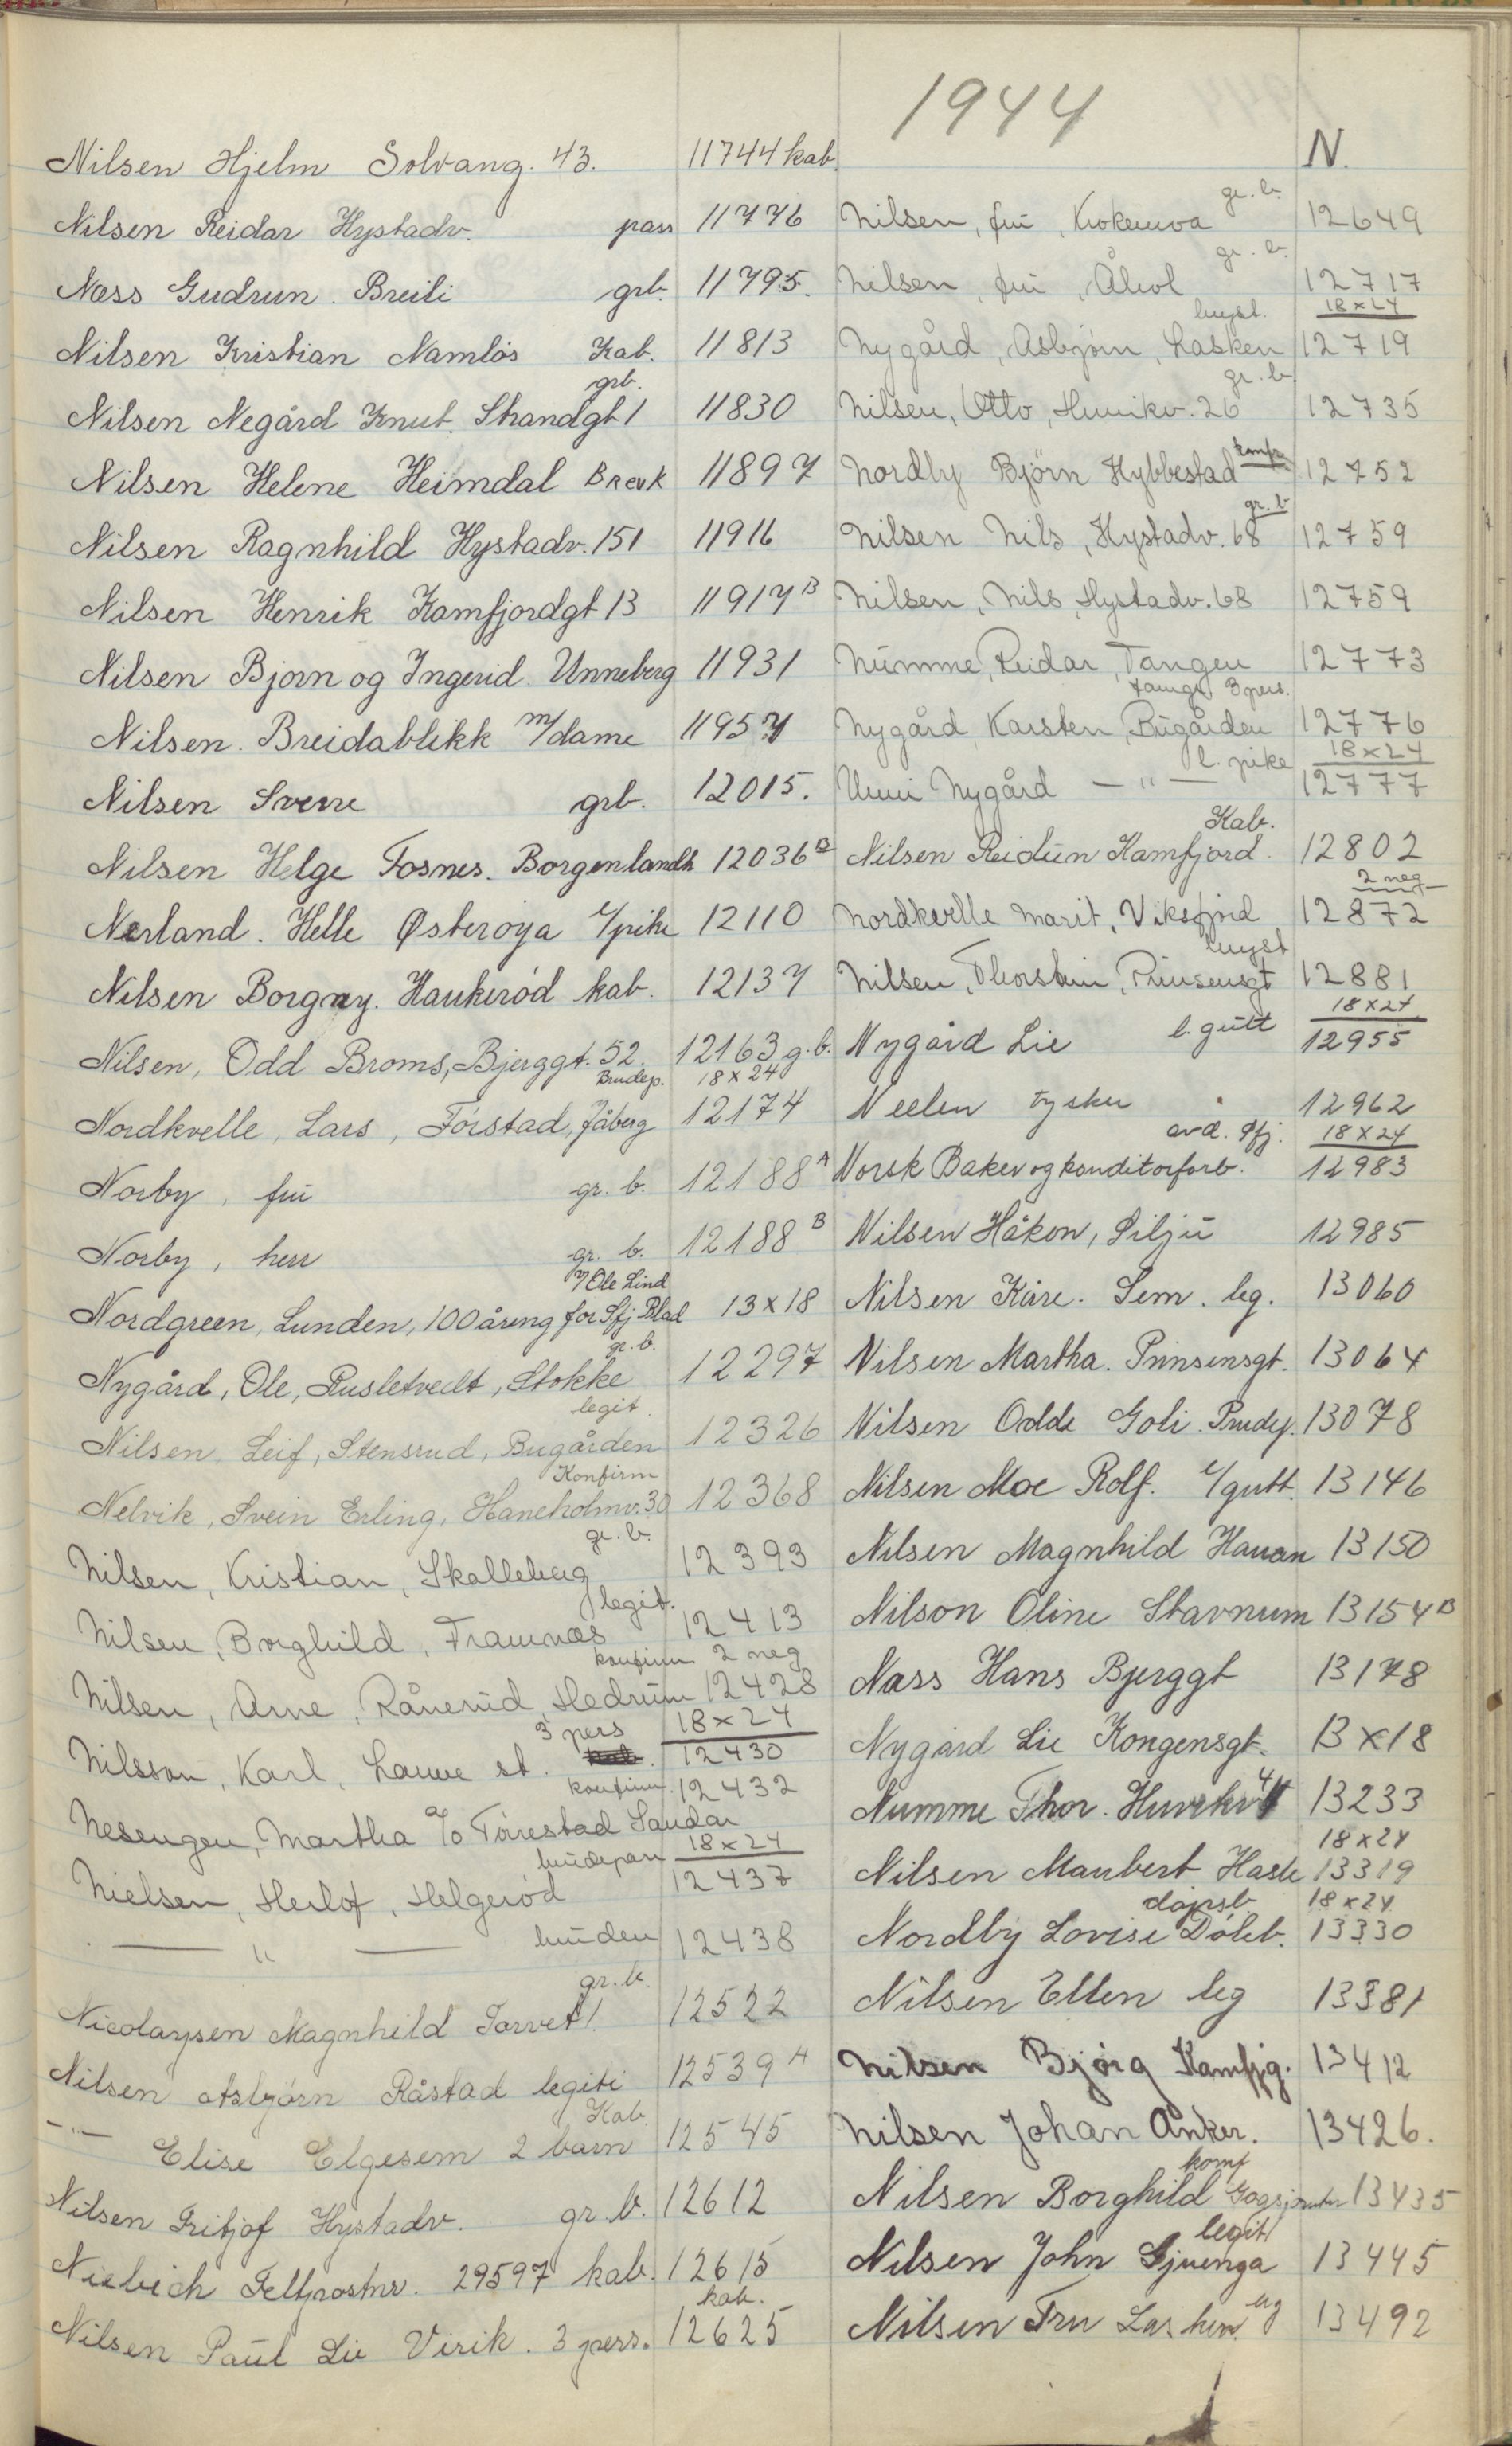 1944
N.
Nilsen Hjelm Solvang. 43. 11744 kab.
Nilsen Reidar Hystadv. pass 11776
Næss Gudrun. Breili grb. 11795.
Nilsen Kristian Namløs Kab. 11813
grb.
Nilsen Negård Knut. Strandgt 1 11830
Nilsen Helene Heimdal Brevk 11897
Nilsen Ragnhild Hystadv. 151 11916
Nilsen Henrik Kamfjordgt 13 11917 B
Nilsen Bjørn og Ingerid. Unneberg 11931
Nilsen. Breidablikk m/dame 11957
Nilsen Sverre grb. 12015.
Nilsen Helge Fosnes. Borgenlandh 12036 B
Nerland. Helle Østerøya l/pike 12110
Nilsen Borgny. Haukerød kab. 12137
Nilsen, Odd Broms, Bjerggt. 52. 12163 g.b.
Brudep. 18x24
Nordkvelle, Lars, Førstad, Jåberg 12174
Norby, fru gr. b. 12188 A
Norby, herr gr. b. 12188 B
v/ Ole Lind
Nordgreen, Lunden, 100 åring for Sfj Blad 13x18
gr. b.
Nygård, Ole, Rusletvedt, Stokke 12297
legit.
Nilsen, Leif, Stensrud, Bugården 12326
Konfirm
Nelvik, Svein Erling, Haneholmv. 30 12368
gr. b.
Nilsen, Kristian, Skalleberg 12393
legit.
Nilsen, Borghild, Framnæs 12413
konfirm 2 neg
Nilsen, Arne, Rånerud, Hedrum 12428
3 pers 18x24
Nilsson, Karl, Lauve st. 12430
konfirm. 12432
Nesengen, Martha c/o Førrestad Sandar
brudepar 18x24
Nielsen, Herlof, Helgerød 12437
— " — bruden 12438
gr. b.
Nicolaysen Magnhild Torvet 1. 12522
Nilsen Asbjørn Råstad legiti 12539 A
Kab.
— " — Elise Elgesem 2 barn 12545
Nilsen Fritjof Hystadv. gr. b. 12612
Niebich Feltpostnr. 29597 kab. 12615
kab.
Nilsen Paul Lie Virik. 3 pers. 12625
gr. b.
Nilsen, fru, Krokemoa 12649
gr. b.
Nilsen, fru, Åbol 12717
bryst. 18x24
Nygård, Asbjørn, Lasken 12719
gr. b.
Nilsen, Otto, Hunikv. 26 12735
konf.
Nordby Bjørn Hybbestad 12752
gr. b
Nilsen Nils, Hystadv. 68 12759
Nilsen, Nils, Hystadv. 68 12759
Numme, Reidar, Tangen 12773
3 pers.
Nygård, Karsten, Bugården 12776
l. pike 18x24
Unni Nygård — " — 12777
Kab.
Nilsen Reidun Kamfjord. 12802
2 neg
Nordkvelle Marit, Viksfjord 12872
bryst
Nilsen, Thorstein, Prinsensgt 12881
l. gutt 18x24
Nygård Lie 12955
Neelen tysker 12962
avd. Sfj. 18x24
Norsk Baker og konditorforb. 12983
Nilsen Håkon, Silju 12985
Nilsen Kåre. Sem. leg. 13060
Nilsen Martha. Prinsensgt. 13064
Nilsen Odde Goli. Brudep. 13078
Nilsen Moe Rolf. l/gutt. 13146
Nilsen Magnhild Hauan 13150
Nilson Oline Stavnum 13154 B
Næss Hans Bjerggt 13178
Nygård Lie Kongensgt. 13x18
Numme Thor. Huvikv 4 13233
18x24
Nilsen Maubert Hasle 13319
dåpsb 18x24
Nordby Lovise Døleb. 13330
Nilsen Ellen leg 13381
Nilsen Bjørg Kamfjg. 13412
Nilsen Johan Anker. 13426.
konf
Nilsen Borghild 13435
legit
Nilsen John Gjuenga 13445
Nilsen Fru Lasken leg 13492